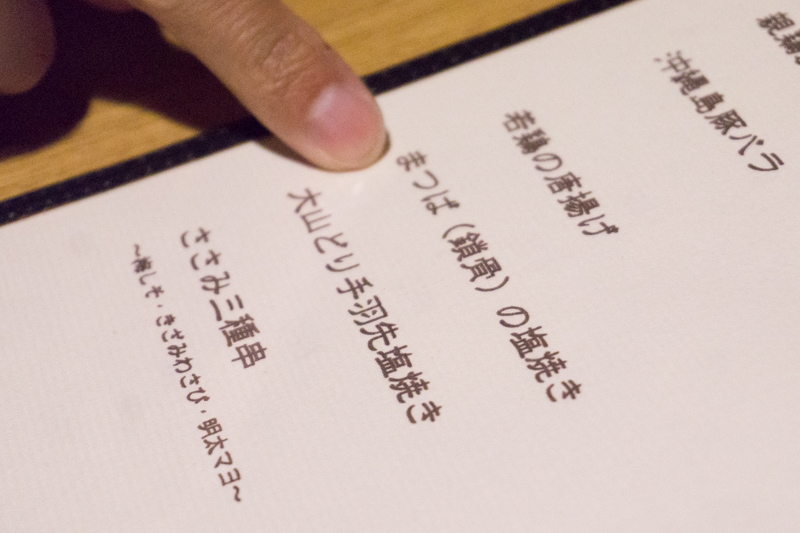 沖縄島豚バラ
若鶏の唐揚げ
まつば（鎖骨）の塩焼き
大山どり手羽先塩焼き
ささみ三種串
～梅しそ・きざみわさび・明太マヨ～